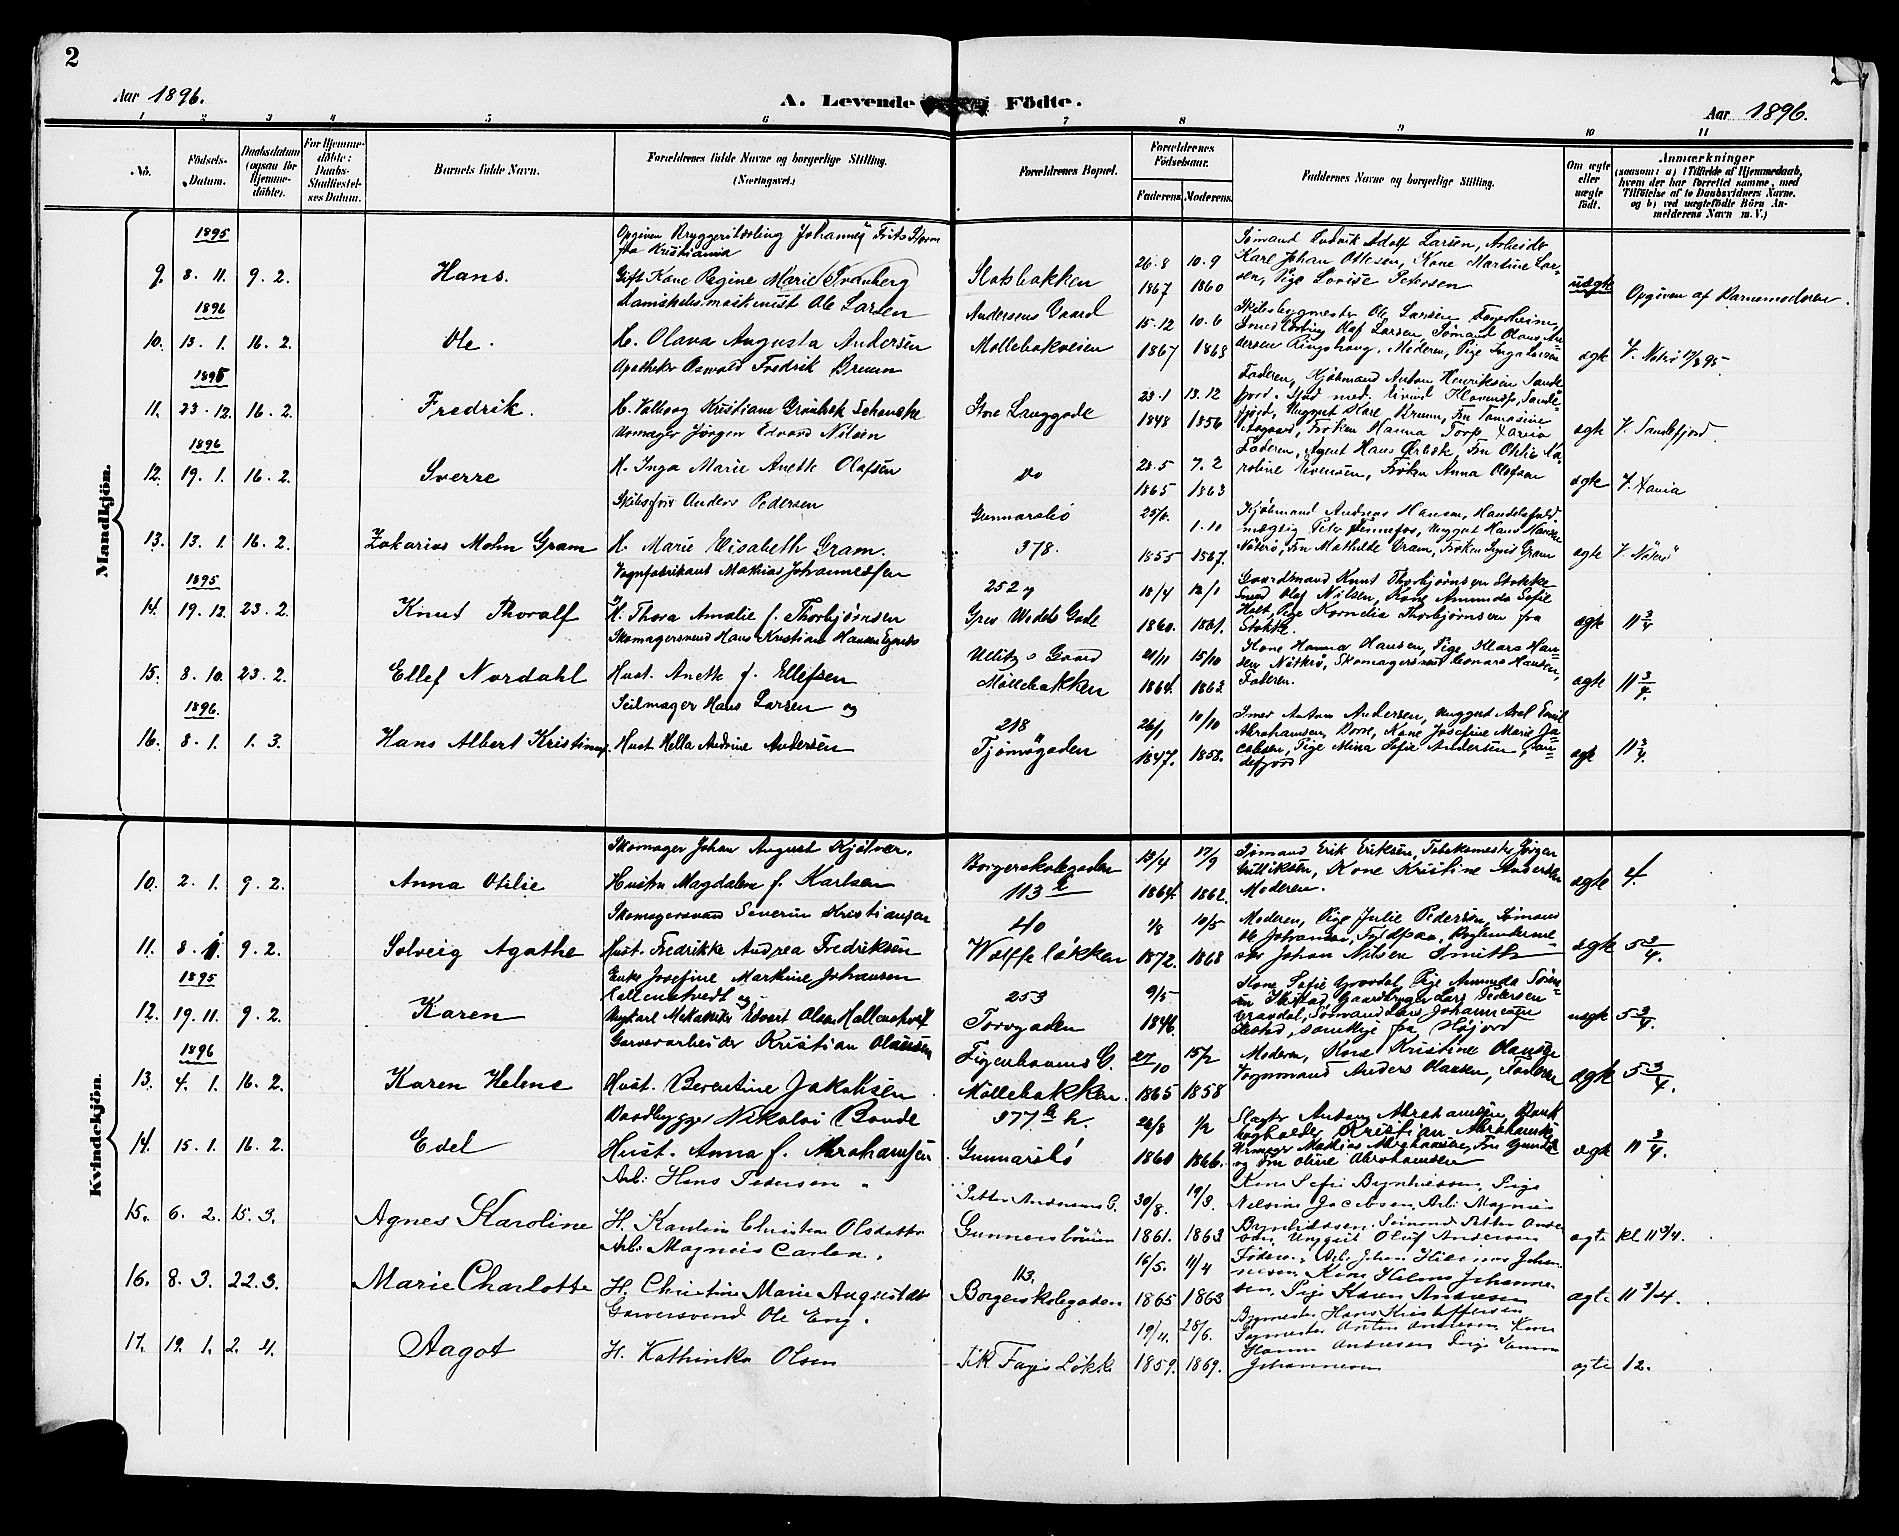 2
Aar 1896.
A. Levende Fødte.
2
Aar 1896.
1 2 3 4 5 6 7 8 9 10 11
No.
Fødsels-Datum.
Daabsdatum (ogsaa for Hjemmedøbte).
For Hjemmedøbte: Daabs-Stadfæstelses Datum.
Barnets fulde Navn.
Forældrenes fulde Navne og borgerlige Stilling.
(Næringsvei.)
Forældrenes Bopæl.
Forældrenes Fødselsaar.
Faderens Moderens
Faddernes Navne og borgerlige Stilling.
Om ægte eller uægte født.
Anmærkninger
(saasom: a) i Tilfælde af Hjemmedaab,
hvem der har forrettet samme, med
Tilføielse af to Daabsvidners Navne,
og b) ved uægtefødte Børn An-
melderens Navn m. V.)
Mandkjøn.
1895
9. 8. 11. 9. 2. Hans.
Opgiven Bryggerilærling Johannes Frits Storm
fra Kristiania
Gift Kone Regine Marie Svanberg
Slotsbakken
26.8 1867 10.9 1860
Sømand Ludvik Adolf Larsen, Arbeider
Karl Johan Ottesen, Kone Martine Lar-
sen, Pige Lovise Petersen
uægte
Opgiven af Barnemoderen.
1896
10. 13. 1. 16. 2. Ole.
Damskibsmaskinist Ole Larsen
H. Olava Augusta Andersen
Andersens Gaard
Møllebakveien
15.12 1867 10.6 1863
Skibsbygmester Ole Larsen
Smedlærling Olaf Larsen, Sømand Olaus An-
dersen Ringshaug, Moderen, Pige Inga
ægte
V. Nøterø
1895
11. 23. 12. 16. 2. Fredrik.
Apotheker Oswald Fredrik Bruun
H. Valborg Kristiane Grønbek Schancke
Store Langgade
23.1 1848 13.12 1856
Faderen, Kjøbmand Anton Henriksen Sande-
fjord, Stud. med.
ægte
V. Sandefjord.
1896
12. 19. 1. 16. 2. Sverre
Urmager Jørgen Edvard Nilsen
H. Inga Marie Anette Olafsen
do
1865 7.2 1863
Faderen, Agent Hans
Evensen, Frøken Anna Olafsen
ægte
13. 13. 1. 16. 2. Zakarius Mohn Gram
Skibsfører Anders Pedersen
H. Marie Elisabeth Gram.
Gunnarsbø
378.
25/6. 1855 1.10 1867.
Kjøbmand Andreas Hansen, Handelsfuld-
mægtig Peter Fennefos, Unggut Hans
Nøterø, Fru Mathilde Gram, Frøken Gram
ægte
V. Nøterø
1895
14. 19. 12. 23. 2. Knut Thoralf
Vognfabrikant Mathias Johannessen
H. Thora Amalie f. Thorbjørnsen
252
Grev Wedels Gade
18/4 1860. 12/1 1861.
Gaardmand Knut Thorbjørnsen Stokke
Smed Olaf Nilsen, Kone Amunda Sofie
Holt, Pige Kornelia Thorbjørnsen fra
Stokke.
ægte 11 3/4
15. 8. 10. 23. 2. Ellef Nordahl
Skomagersvend Hans Kristian Hansen
Hust. Anette f. Ellefsen
Ullitz's Gaard
Møllebakken
21/11 1864. 15/10 1863.
Kone Hanna Hansen, Pige Klara Han-
sen Nøterø, Skomagersvend Leonard Hansen,
Faderen.
ægte 11 3/4.
1896.
16. 8. 1. 1. 3. Hans Albert Kristinus.
Seilmager Hans Larsen og
Hust Hella Andrine Andersen
218
Tjømøgaden
26/1 1847. 10/10 1858.
Smed Anton Andersen, Unggut Axel Emil
Abrahamsen, Borre, Kone Josefine Marie Ja-
cobsen, Pige Mina Sofie Andersen, San-
defjord.
ægte 11 3/4.
Kvindekjøn.
10. 2. 1. 9. 2. Anna Otilie
Skomager Johan August Kjølner.
Hustru Magdalene f. Karlsen
Borgerskolegaden
113
13/4 1864. 17/9 1862.
Sømand Erik Eriksen, Jørgen
Gulliksen, Kone Kristine Andersen
Moderen.
ægte 4.
11. 8. 1. 9. 2. Solveig Agathe
Skomagersvend Severin Kristiansen
Hust. Fredrikke Andrea Fredriksen
40
Wolffeløkken
1/8 1872. 10/5 1868
Moderen, Pige Julie Pedersen, Sømand
Ole Johansen,
Johan Nilsen Smith
ægte 5 3/4.
1895
12. 19. 11. 9. 2. Karen
Enke Josefine Martine Johansen
Hallenstvedt og
Ungkarl Mekaniker Edvart Olsen Hallenstvedt
253
Torvgaden
9/5 1846.
Kone Sofie Gravdal, Pige Amunda Søren-
sen, Gaardbruger Lars Pedersen
Gravdal, Sømand Lars Johannesen
samtlige fra
uægte 5 3/4.
1896
13. 4. 1. 16. 2. Karen Helene
Garverarbeider Kristian Olaussen
Hust. Berentine Jakobsen
Møllebakken.
27/10 1865 15/2 1858
Moderen, Kone Kristine Olausen
Vognmand Anders Olausen, Faderen
ægte 5 3/4.
14. 15. 1. 16. 2. Edel
Baadbygger Nikolai Bonde
Hust. Anna f. Abrahamsen
377 h.
Gunnarsbø
26/8 1860 1/2 1866.
Slagter Anton Abrahamsen, Bank
bogholder Kristian Abrahamsen
Urmager Mathias Abrahamsen, Fru
og Fru Oline Abrahamsen
ægte 11 3/4.
15. 6. 2. 15. 3. Agnes Karoline
Arb: Hans Pedersen
H. Karoline Christine Olsdatter
Petter Andersens G.
Gunnersbøveien
30/8. 1861. 19/3. 1863
Kone Sofie Brynhildsen, Pige
Nelsine Jacobsen, Arb: Magnus
Brynhildsen, Sømand Petter Ander-
sen, Unggut Oluf Andersen
ægte. kl 11 3/4.
16. 8. 3. 22. 3. Marie Charlotte
Arb: Magnus Carlsen.
H. Christine Marie Augustsdtr
113.
Borgerskolegaden
16/5. 1865 11/4 1863
Faderen, Arb: Johan Johan-
nesen, Kone Helene Johanne-
sen, Pige Karen Andersen
ægte. 11 3/4.
17. 19. 1. 2. 4. Aagot
Garversvend Ole Eng.
H. Kathinka Olsen
Fayes Løkke
19/11. 1859. 28/6. 1869.
Bygmester Hans Kristoffersen
Anton Andersen, Kone
Hanna Andersen, Pige Emma
Johannesen
ægte 12.